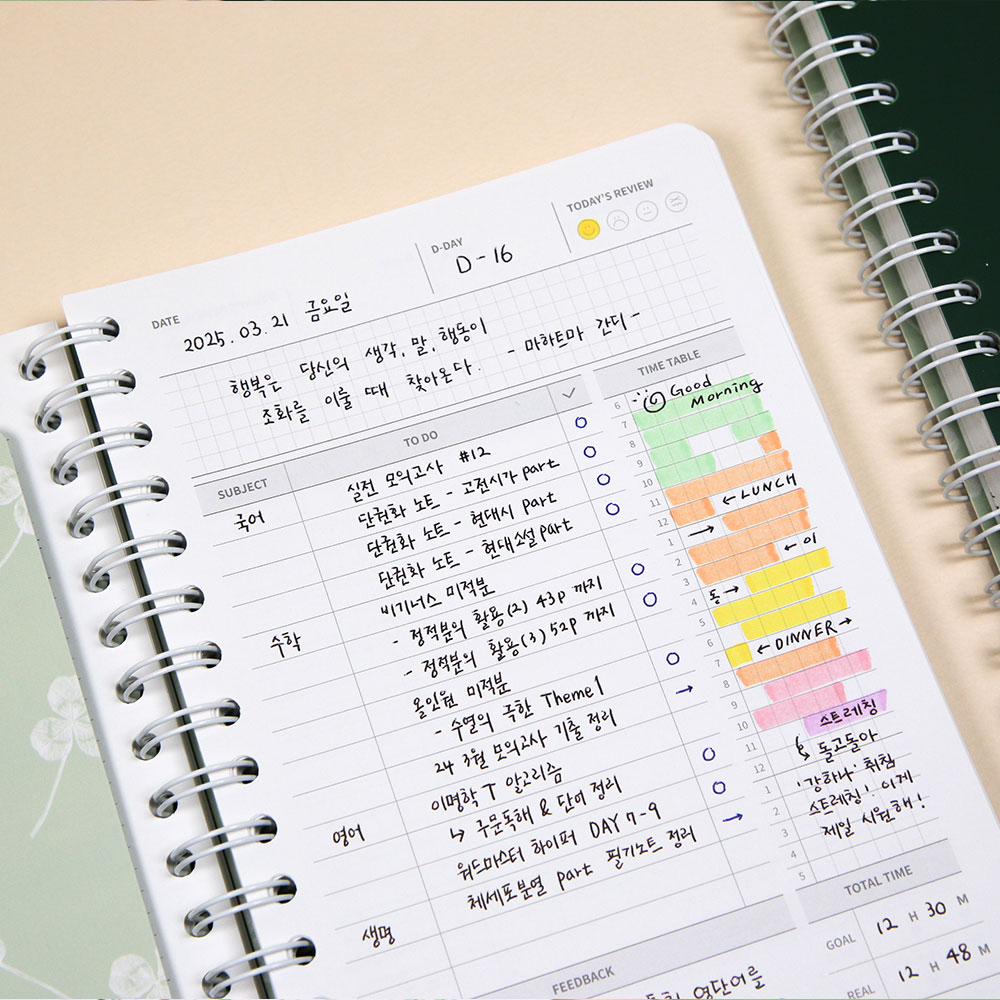 DATE
2025.03.21 금요일
D-DAY
D-16
TODAY'S REVIEW
행복은 당신의 생각, 말, 행동이
조화를 이룰 때 찾아온다. - 마하트마 간디 -
SUBJECT
TO DO
국어
실전 모의고사 #12
단권화 노트 - 고전시가 part
단권화 노트 - 현대시 part
단권화 노트 - 현대소설 part
수학
비기너스 미적분
- 정적분의 활용(2) 43p 까지
- 정적분의 활용(3) 52p 까지
올인원 미적분
- 수열의 극한 Theme 1
24 3월 모의고사 기출 정리
영어
이명학 T 알고리즘
↳ 주문독해 & 단어 정리
워드마스터 하이퍼 DAY 7-9
생명
체세포분열 part 필기노트 정리
TIME TABLE
6
7
8
9
10
11
12
1
2
3
4
5
6
7
8
9
10
11
12
1
2
3
4
5
Good
Morning
← LUNCH
→
← 이
동 →
← DINNER →
스트레칭
돌고돌아
'강하나' 취침
스트레칭! 이게
제일 시원해!
TOTAL TIME
GOAL 12 H 30 M
REAL 12 H 48 M
FEEDBACK
영단어를